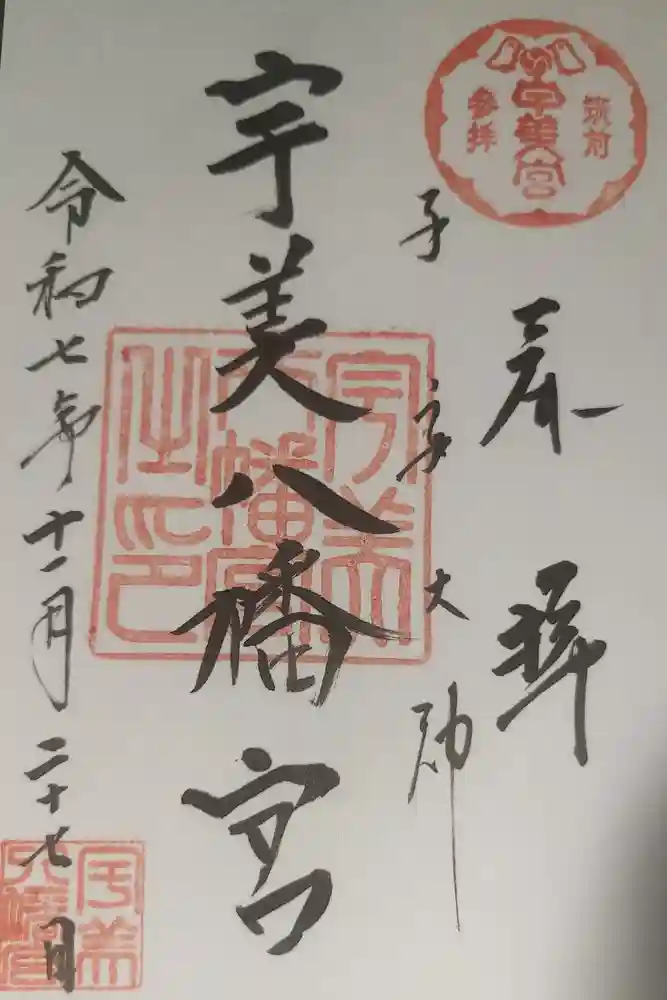 筑前
宇美宮
参拝
奉拝
子安大神
宇美八幡宮
宇美
八幡宮
之印
令和七年十一月二十七日
宇美
八幡宮